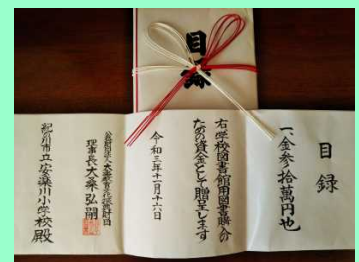 目録
目録
一、金参拾萬円也
右学校図書館用図書購入の
ための資金として贈呈します
令和三年十一月十六日
公益財団法人大桑教育文化振興財団
理事長 大桑弘嗣
紀の川市立安楽川小学校殿